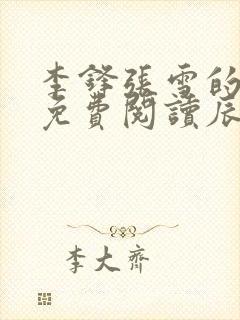 李鋒張雪的
免費閱讀辰
李大齊